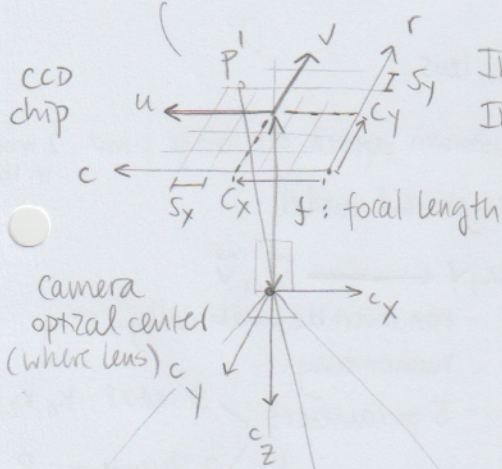 r
v
p'
CCD
chip
u
I S_y
C_y
c
S_x
C_x
f : focal length
camera
optizal center
(where lens)
c_x
c_y
c_z